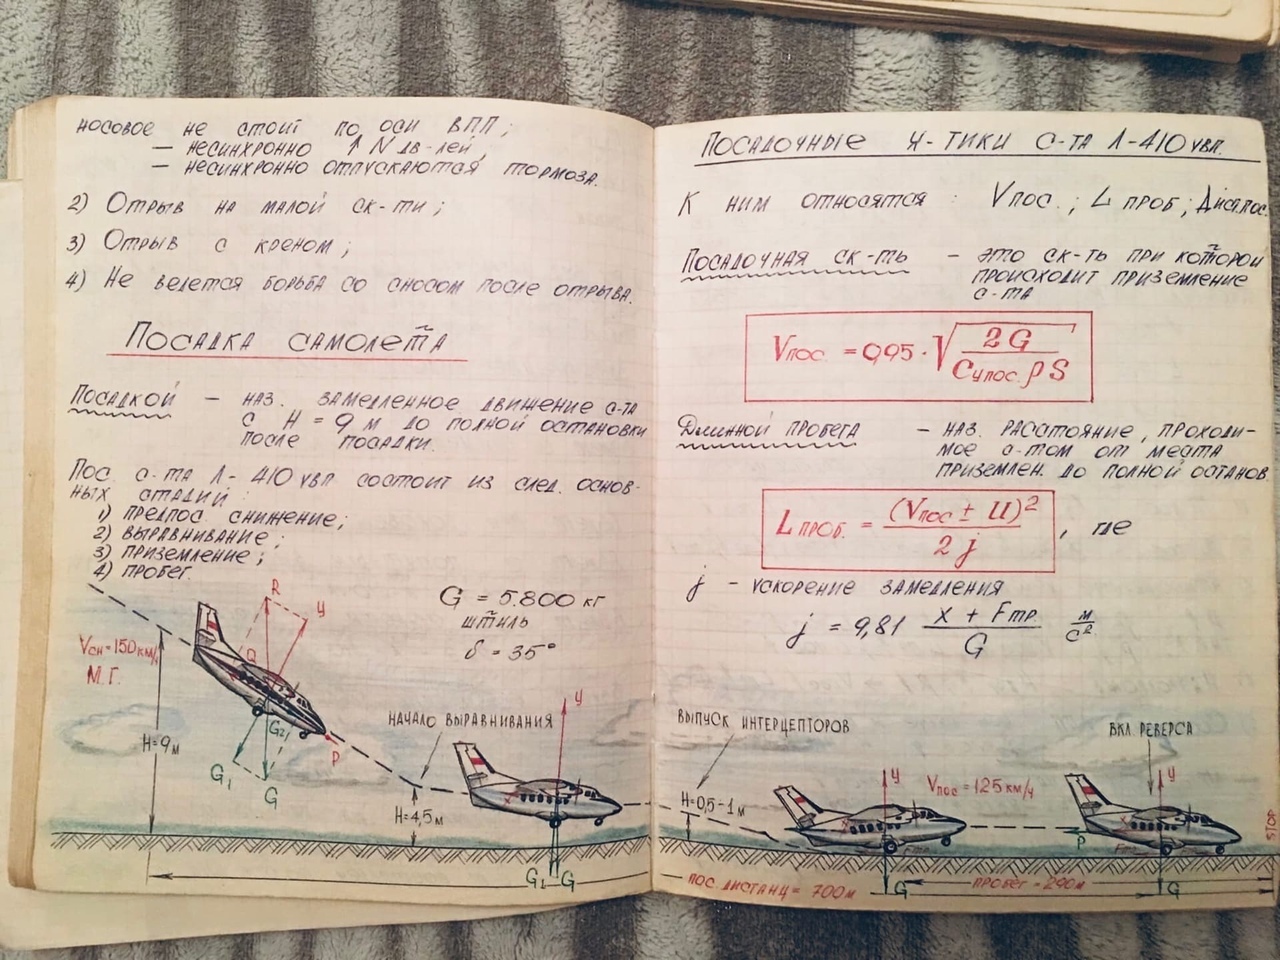 носовое не стоит по оси ВПП;
— несинхронно ↑ N дв-лей,
— несинхронно отпускаются тормоза.
2) Отрыв на малой ск-ти;
3) Отрыв с креном;
4) Не ведется борьба со сносом после отрыва.
Посадка самолета
Посадкой — наз. замедленное движение с-та
с H = 9 м до полной остановки
после посадки.
Пос. с-та Л-410 увп состоит из след. основ-
ных стадий:
1) предпос. снижение;
2) выравнивание;
3) приземление;
4) пробег.
G = 5.800 кг
штиль
δ = 35°
Vсн = 150 км/ч
М.Г.
R
У
Q
G2
P
G1
G
H=9м
начало выравнивания
H=4,5м
У
X
G1 G
Посадочные х-тики с-та Л-410 увп.
К ним относятся: Vпос.; L проб; Дист.пос.
Посадочная ск-ть — это ск-ть при которой
происходит приземление
с-та
Vпос. = 0,95 · √(2G / Cупос. ρ S)
Длинной пробега — наз. расстояние, проходи-
мое с-том от места
приземлен. до полной останов
L проб. = (Vпос ± U)² / 2j, где
j - ускорение замедления
j = 9,81 (X + Fтр.) / G м/с²
выпуск интерцепторов
вкл. реверса
H=0,5-1м
У
X
Vпос = 125 км/ч
Fтр
G
P
У
X
Fтр
G
STOP
пос. дистанц = 700м
пробег = 290м